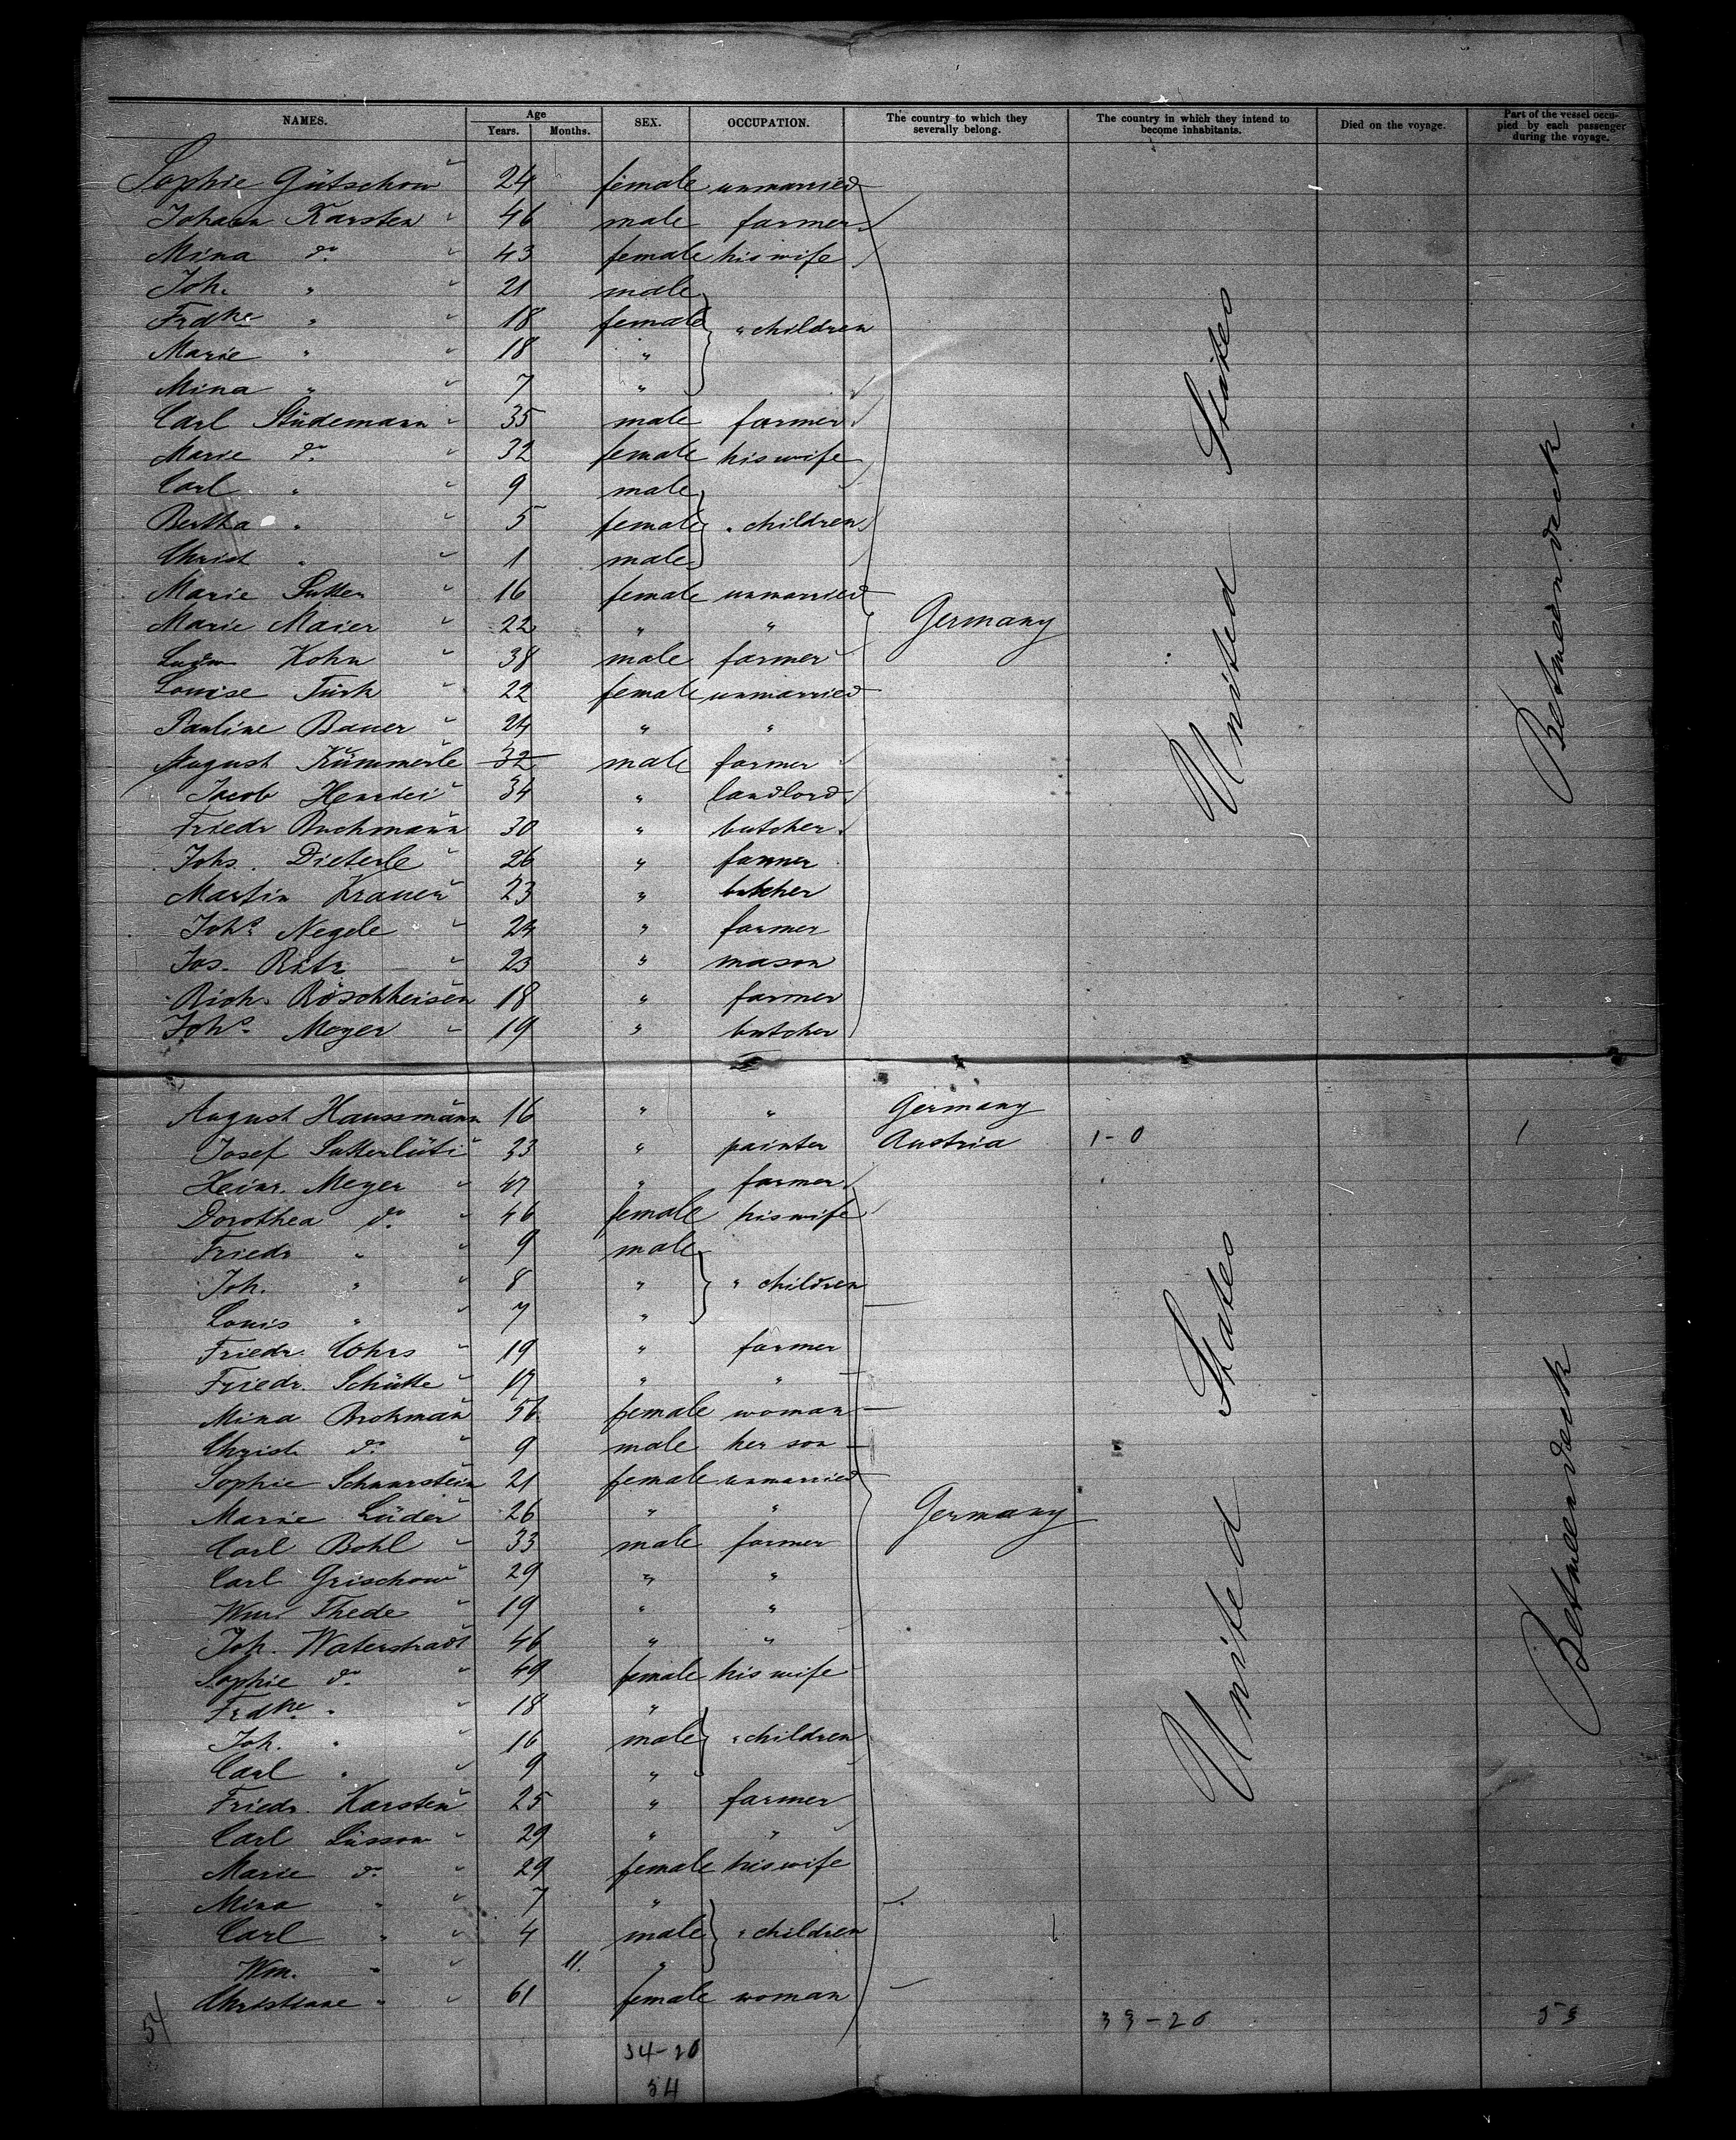 NAMES. Age Years. Months. SEX. OCCUPATION. The country to which they severally belong. The country in which they intend to become inhabitants. Died on the voyage. Part of the vessel occupied by each passenger during the voyage.
Sophie Gütschow 24 female unmarried
Johann Karsten 46 male farmer
Mina do 43 female his wife
Joh. " 21 male
Frdke " 18 female " children
Marie " 18 "
Mina " 7 "
Carl Stüdemann 35 male farmer
Marie do 32 female his wife
Carl " 9 male
Bertha " 5 female " children
Christ " 1 male
Marie Sutter 16 female unmarried
Marie Maier 22 " " Germany
Ludw Kohn 38 male farmer
Louise Türk 22 female unmarried
Pauline Bauer 24 " "
August Kümmerle 32 male farmer
Jacob 34 " landlord
Friedr Buchmann 30 " butcher
Johs. Dieterle 26 " farmer
Martin 23 " butcher
Johs Negele 24 " farmer
Jos. 23 " mason
Rich. Röschheisen 18 " farmer
Johs. Meyer 19 " butcher
United States
Betweendeck
August Haussmann 16 " " Germany
Josef Sutterlüti 33 " painter Austria 1-0 1
Heinr. Meyer 47 " farmer
Dorothea do 46 female his wife
Friedr " 9 male
Joh. " 8 " " children
Louis " 7 "
Friedr. Cohrs 19 " farmer
Friedr. Schütte 17 " "
Mina Brokmann 56 female woman
Christ do 9 male her son
Sophie 21 female unmarried
Marie Lüder 26 " " Germany
Carl Bohl 33 male farmer
Carl Grischow 29 " "
Wm. Thede 19 " "
Joh. Waterstradt 46 " "
Sophie do 49 female his wife
Frdke " 18 "
Joh. " 16 male " children
Carl " 9 "
Friedr. Karsten 25 " farmer
Carl Lüssow 29 " "
Marie do 29 female his wife
Mina " 7 "
Carl " 4 male " children
Wm. " 11. "
Christiane " 61 female woman
United States
Betweendeck
54 33-20 53
34-20
54